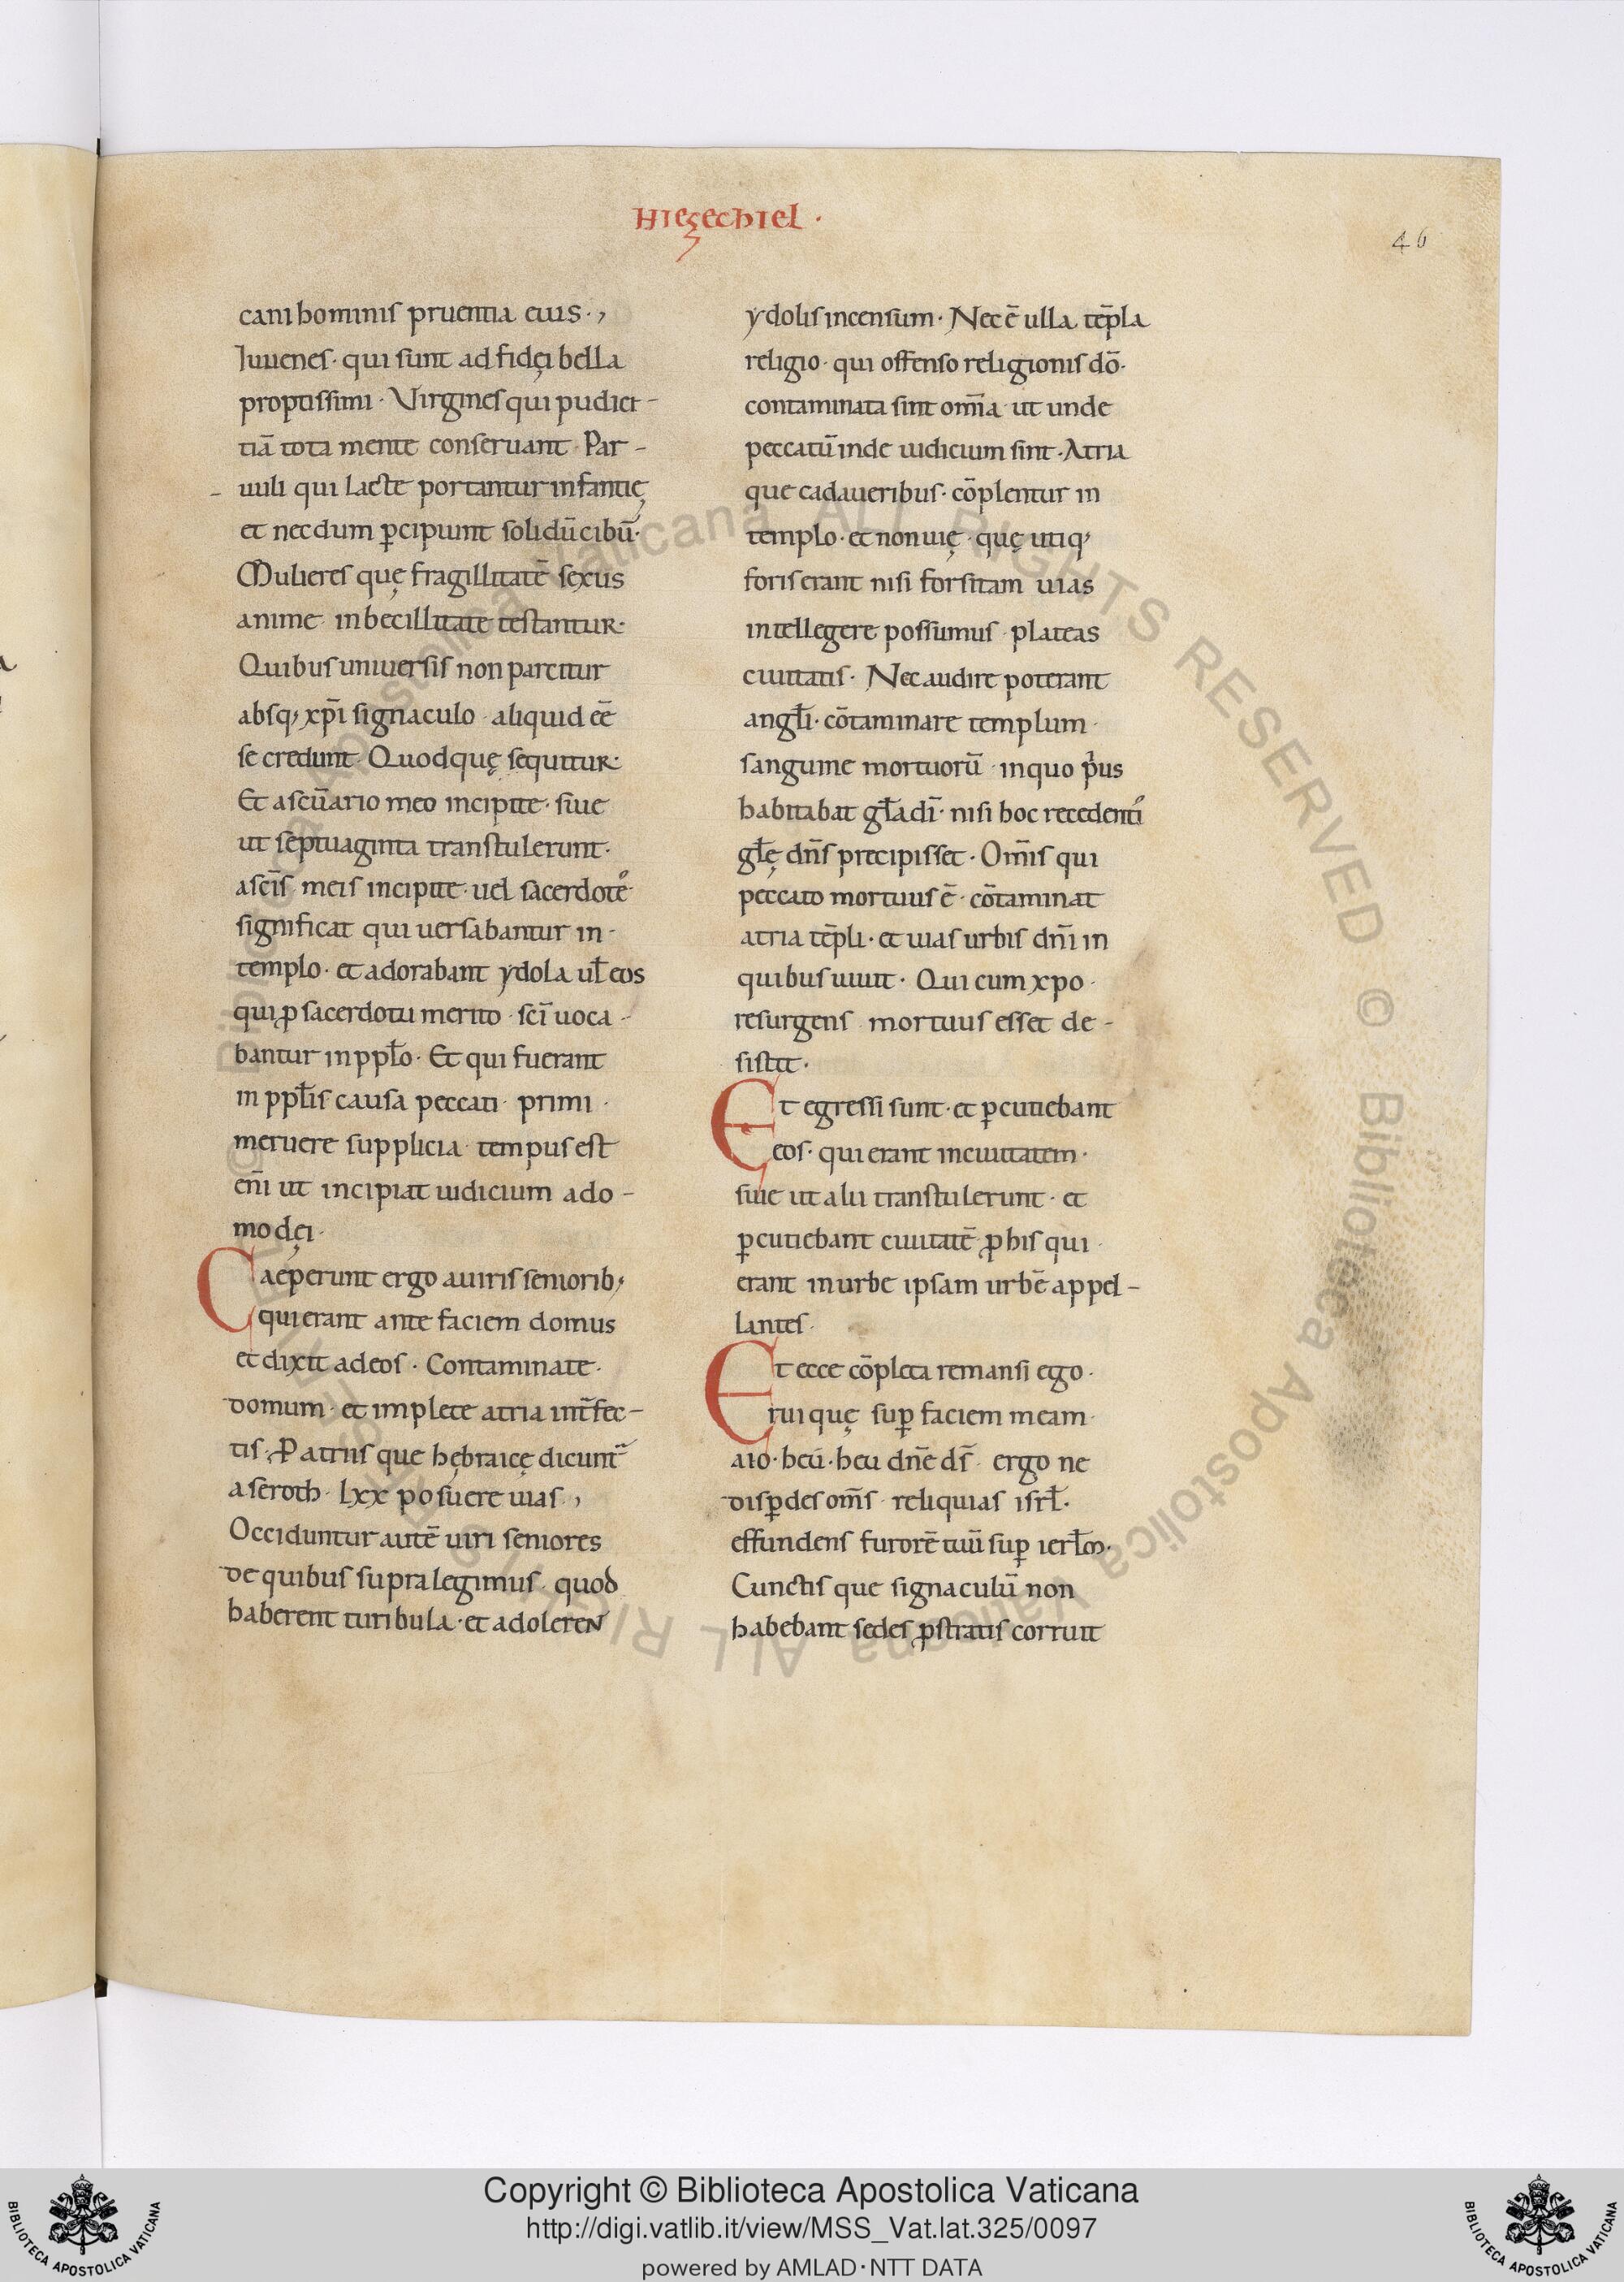 Hiezechiel·
46
cani hominis pruentia eius·,
Iuuenes· qui sunt ad fidęi bella
proptissimi· Virgines qui pudici-
tiā tota mente conseruant· Par-
uuli qui lacte portantur infantię
et necdum ꝑcipiunt solidū cibū·
Mulieres quę fragillitatē sexus
anime inbecillitate testantur·
Quibus uniuersis non parcitur
absq; xp̄i signaculo· aliquid eē
se credunt· Quodquę sequitur·
Et a scūario meo incipite· siue
ut septuaginta transtulerunt·
a scīs meis incipite· uel sacerdotē
significat qui uersabantur in·
templo· et adorabant ydola ul̄ eos
qui ꝓ sacerdotu merito· scī uoca-
bantur in ppl̄o· Et qui fuerant
in ppl̄is causa peccati· primi·
meruere supplicia· tempus est
eñi ut incipiat iudicium a do-
mo dęi·
Caeperunt ergo a uiris seniorib;
qui erant ante faciem domus
et dixit ad eos· Contaminate·
domum· et implete atria int̄fec-
tis· P atriis que hębraicę dicunt̄
aseroth· lxx posuere uias·,
Occiduntur autē uiri seniores
de quibus supra legimus· quod
haberent turibula· et adoleren
ydolis incensum· Nec ē ulla tēpla
religio· qui offenso religionis dō·
contaminata sint om̄ia ut unde
peccatū inde iudicium sint· Atria
que cadaueribus· cōplentur in
templo· et non uię· quę utiq;
foris erant nisi forsitam uias
intellegere possumus· plateas
ciuitatis· Nec audire poterant
angl̄i· cōtaminare templum·
sanguine mortuorū· in quo p̄us
habitabat gl̄a dī· nisi hoc recedenti
gl̄ę dn̄s precipisset· Om̄is qui
peccato mortuus ē· cōtaminat
atria tēpli· et uias urbis dn̄i in
quibus uiuit· Qui cum xpo·
resurgens mortuus esset de-
sistit·
Et egressi sunt· et ꝑcutiebant
eos· qui erant in ciuitatem·
siue ut alii transtulerunt· et
ꝑcutiebant ciuitatē ꝓ his qui·
erant in urbe ipsam urbē appel-
lantes·
Et ecce cōpleta remansi ego·
rui quę suꝑ faciem meam·
aio· heu· heu dn̄e ds̄· ergo ne
disꝑdes om̄s reliquias isrl̄·
effundens furorē tuū suꝑ ierl̄m·
Cunctis que signaculū non
habebant sedes ꝓstratis corruit
Copyright © Biblioteca Apostolica Vaticana
http://digi.vatlib.it/view/MSS_Vat.lat.325/0097
powered by AMLAD·NTT DATA
BIBLIOTECA APOSTOLICA VATICANA
BIBLIOTECA APOSTOLICA VATICANA
© Biblioteca Apostolica Vaticana ALL RIGHTS RESERVED © Biblioteca Apostolica Vaticana ALL RIGHTS RESERVED